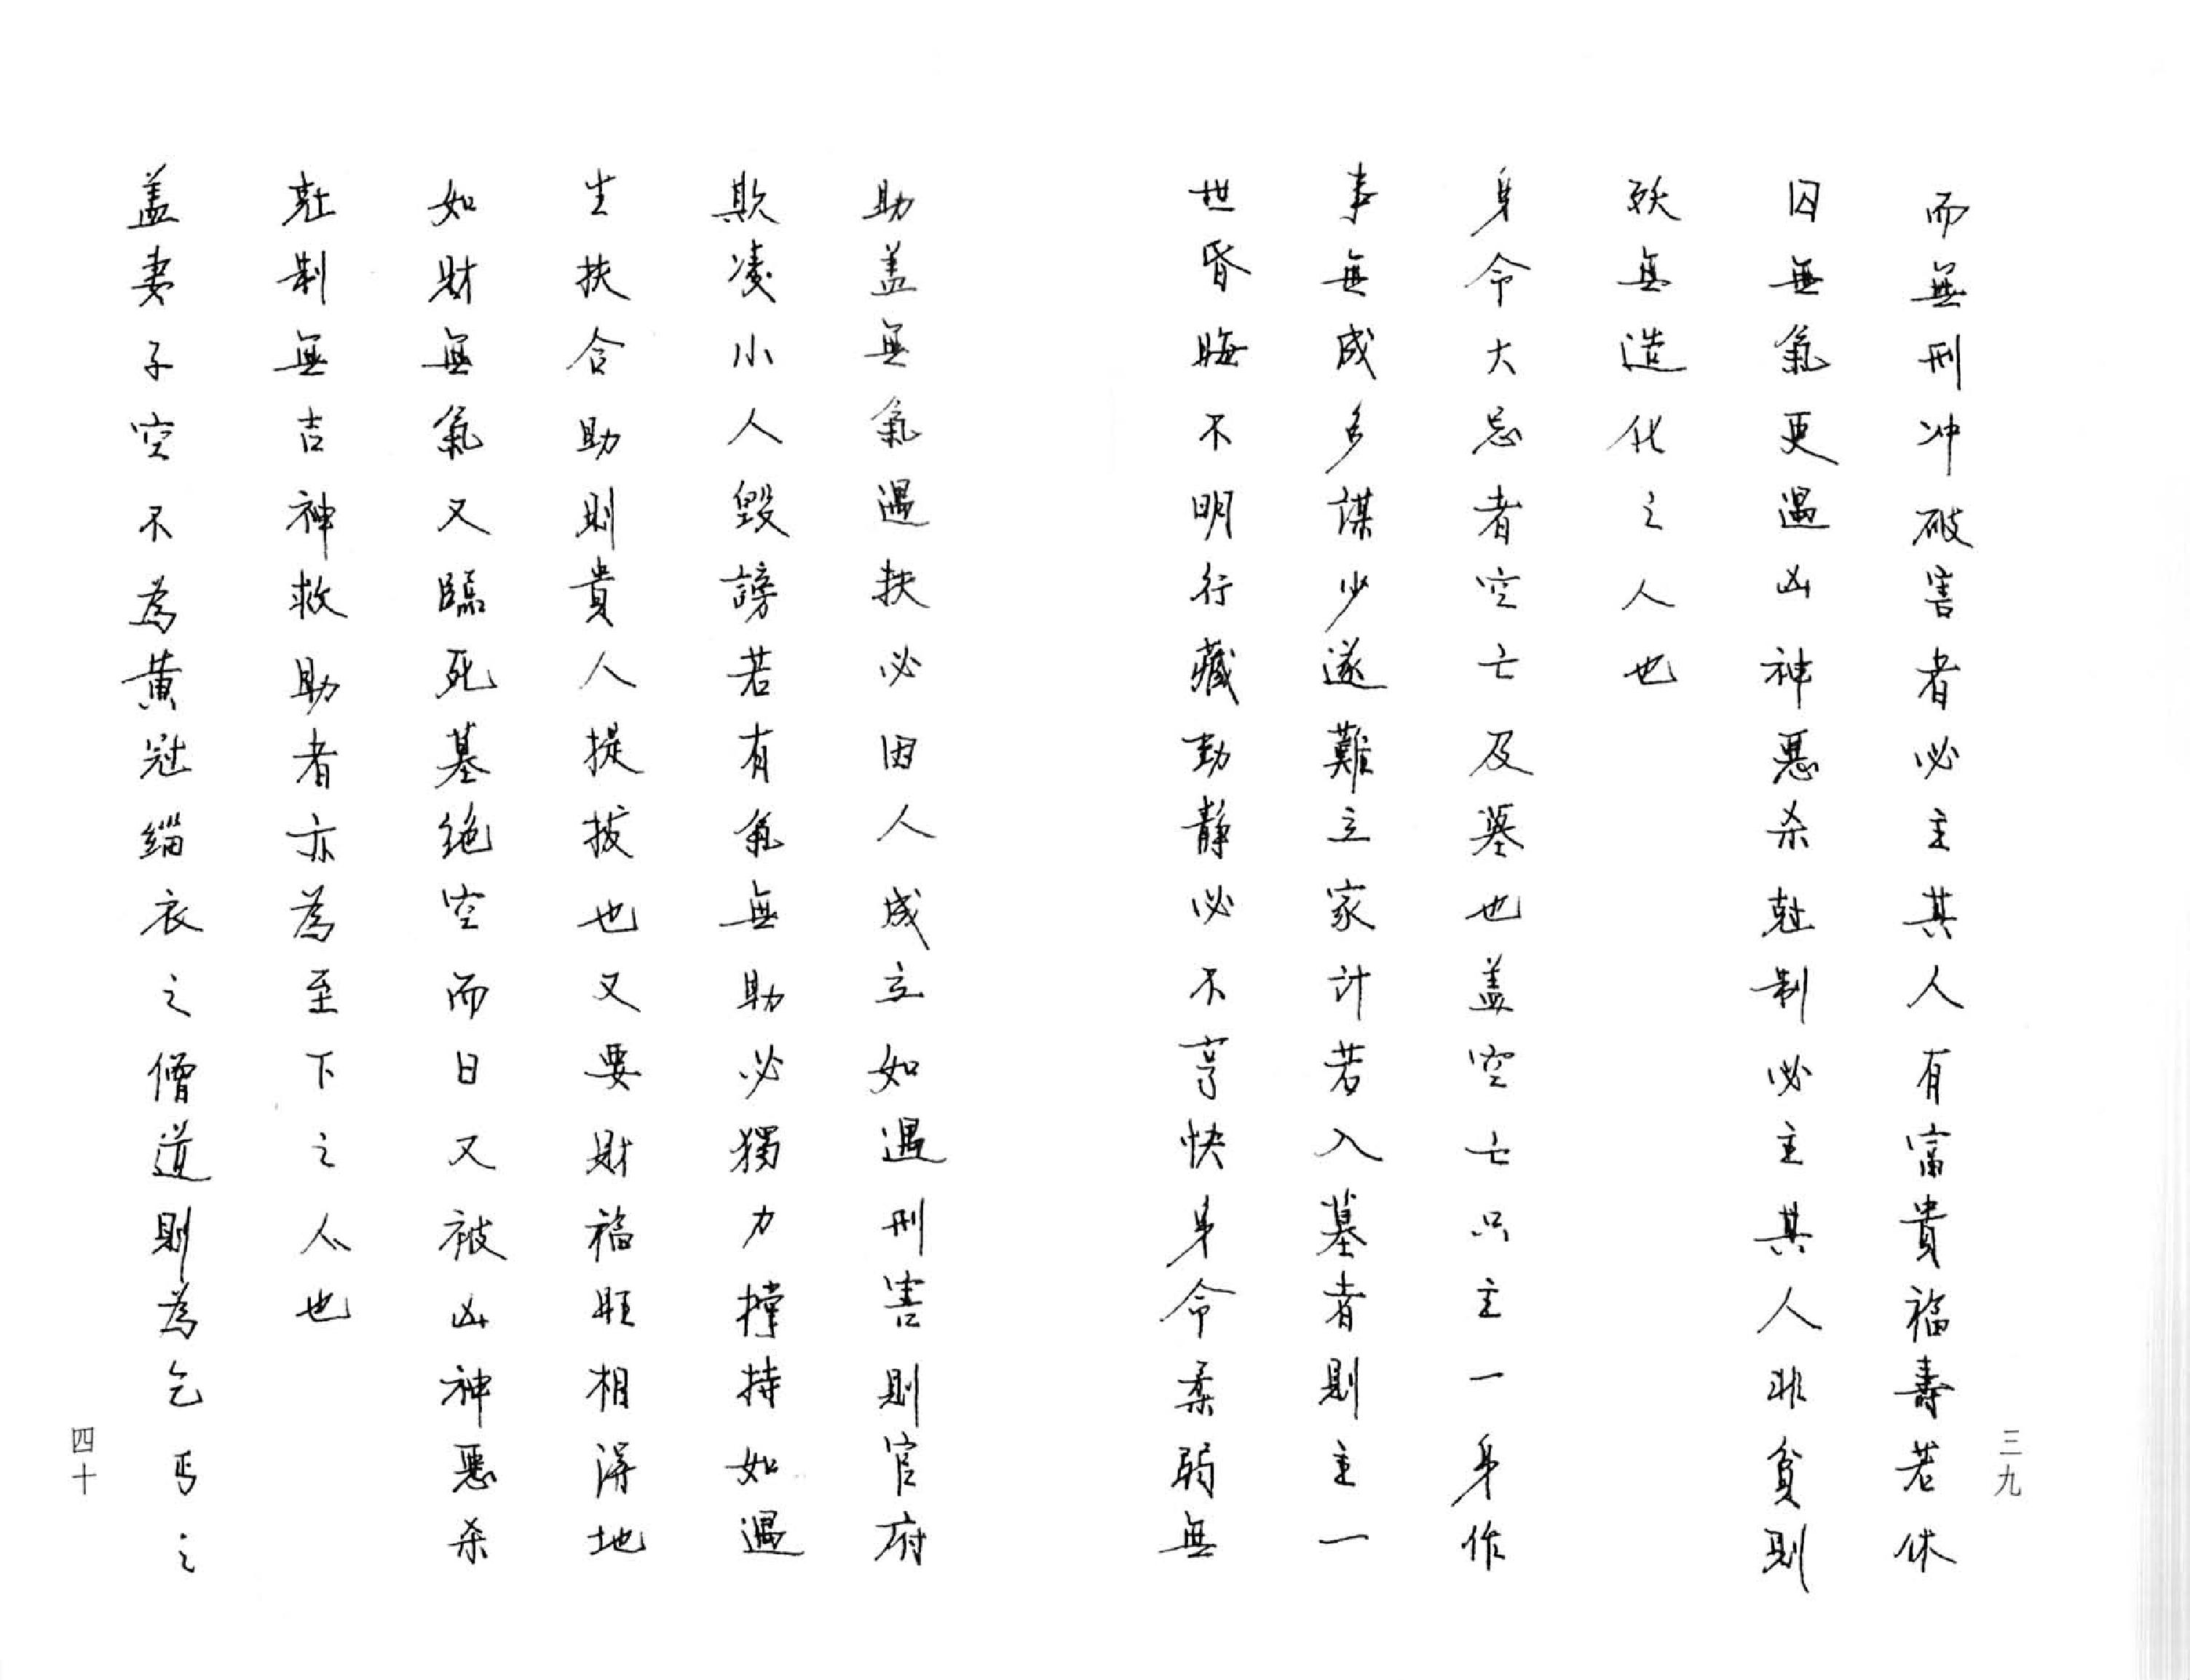 而無刑冲破害者必主其人有富貴福壽若休
囚無氣更遇凶神惡杀尅制必主其人非貧則
殀無造化之人也
身命大忌者空亡及墓也盖空亡只主一身作
事無成多謀少遂難立家計若入墓者則主一
世昏晦不明行藏動靜必不亨快身命柔弱無
三九
助盖無氣遇扶必因人成立如遇刑害則官府
欺凌小人毀謗若有氣無助必獨力撑持如遇
生扶合助則貴人提拔也又要財福旺相得地
如財無氣又臨死墓绝空而日又被凶神惡杀
尅制無吉神救助者亦為至下之人也
盖妻子空不為黄冠缁衣之僧道則為乞丐之
四十